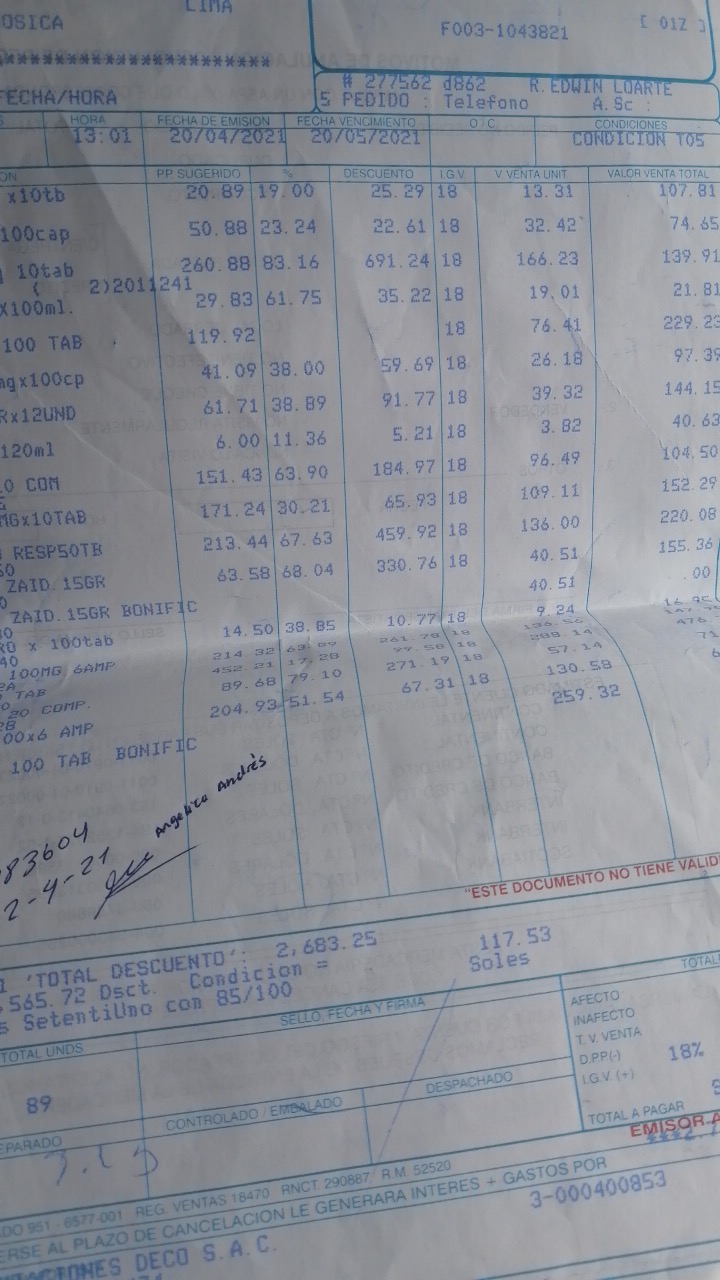 LIMA
OSICA
F003-1043821 [ 01Z ]
********************
# 277562 d862 R.EDWIN LOARTE
FECHA/HORA 5 PEDIDO : Telefono A.Sc :
HORA FECHA DE EMISION FECHA VENCIMIENTO O/C CONDICIONES
13:01 20/04/2021 20/05/2021 CONDICION T05
ON PP SUGERIDO % DESCUENTO I.G.V. V VENTA UNIT VALOR VENTA TOTAL
x10tb 20.89 19.00 25.29 18 13.31 107.81
100cap 50.88 23.24 22.61 18 32.42 74.65
10tab 260.88 83.16 691.24 18 166.23 139.91
( 2)2011241
X100ml. 29.83 61.75 35.22 18 19.01 21.81
100 TAB 119.92 18 76.41 229.23
mgx100cp 41.09 38.00 59.69 18 26.18 97.39
Rx12UND 61.71 38.89 91.77 18 39.32 144.15
120ml 6.00 11.36 5.21 18 3.82 40.63
COM 151.43 63.90 184.97 18 96.49 104.50
MGx10TAB 171.24 30.21 65.93 18 109.11 152.29
RESP50TB 213.44 67.63 459.92 18 136.00 220.08
ZAID.15GR 63.58 68.04 330.76 18 40.51 155.36
ZAID.15GR BONIFIC 40.51 .00
RO x 100tab 14.50 38.85 10.77 18 9.24
100MG 6AMP 214.32 18
TAB 452.21 17.28 18 288.14
20 COMP. 89.68 79.10 271.19 18 57.14
00x6 AMP 204.93 51.54 67.31 18 130.58
100 TAB BONIFIC 259.32
83604
2-4-21
Angelica Andrés
"ESTE DOCUMENTO NO TIENE VALID
'TOTAL DESCUENTO': 2,683.25
565.72 Dsct. Condicion = 117.53
s SetentiUno con 85/100 Soles
TOTAL UNDS. SELLO, FECHA Y FIRMA TOTAL
89
AFECTO
INAFECTO
T. V. VENTA
D.P.P(-)
I.G.V. (+) 18%
TOTAL A PAGAR
EPARADO CONTROLADO / EMBALADO DESPACHADO
EMISOR A
ADO 951 - 6577-001 REG. VENTAS 18470 RNCT. 290887 R.M. 52520
ERSE AL PLAZO DE CANCELACION LE GENERARA INTERES + GASTOS POR
3-000400853
TACIONES DECO S.A.C.